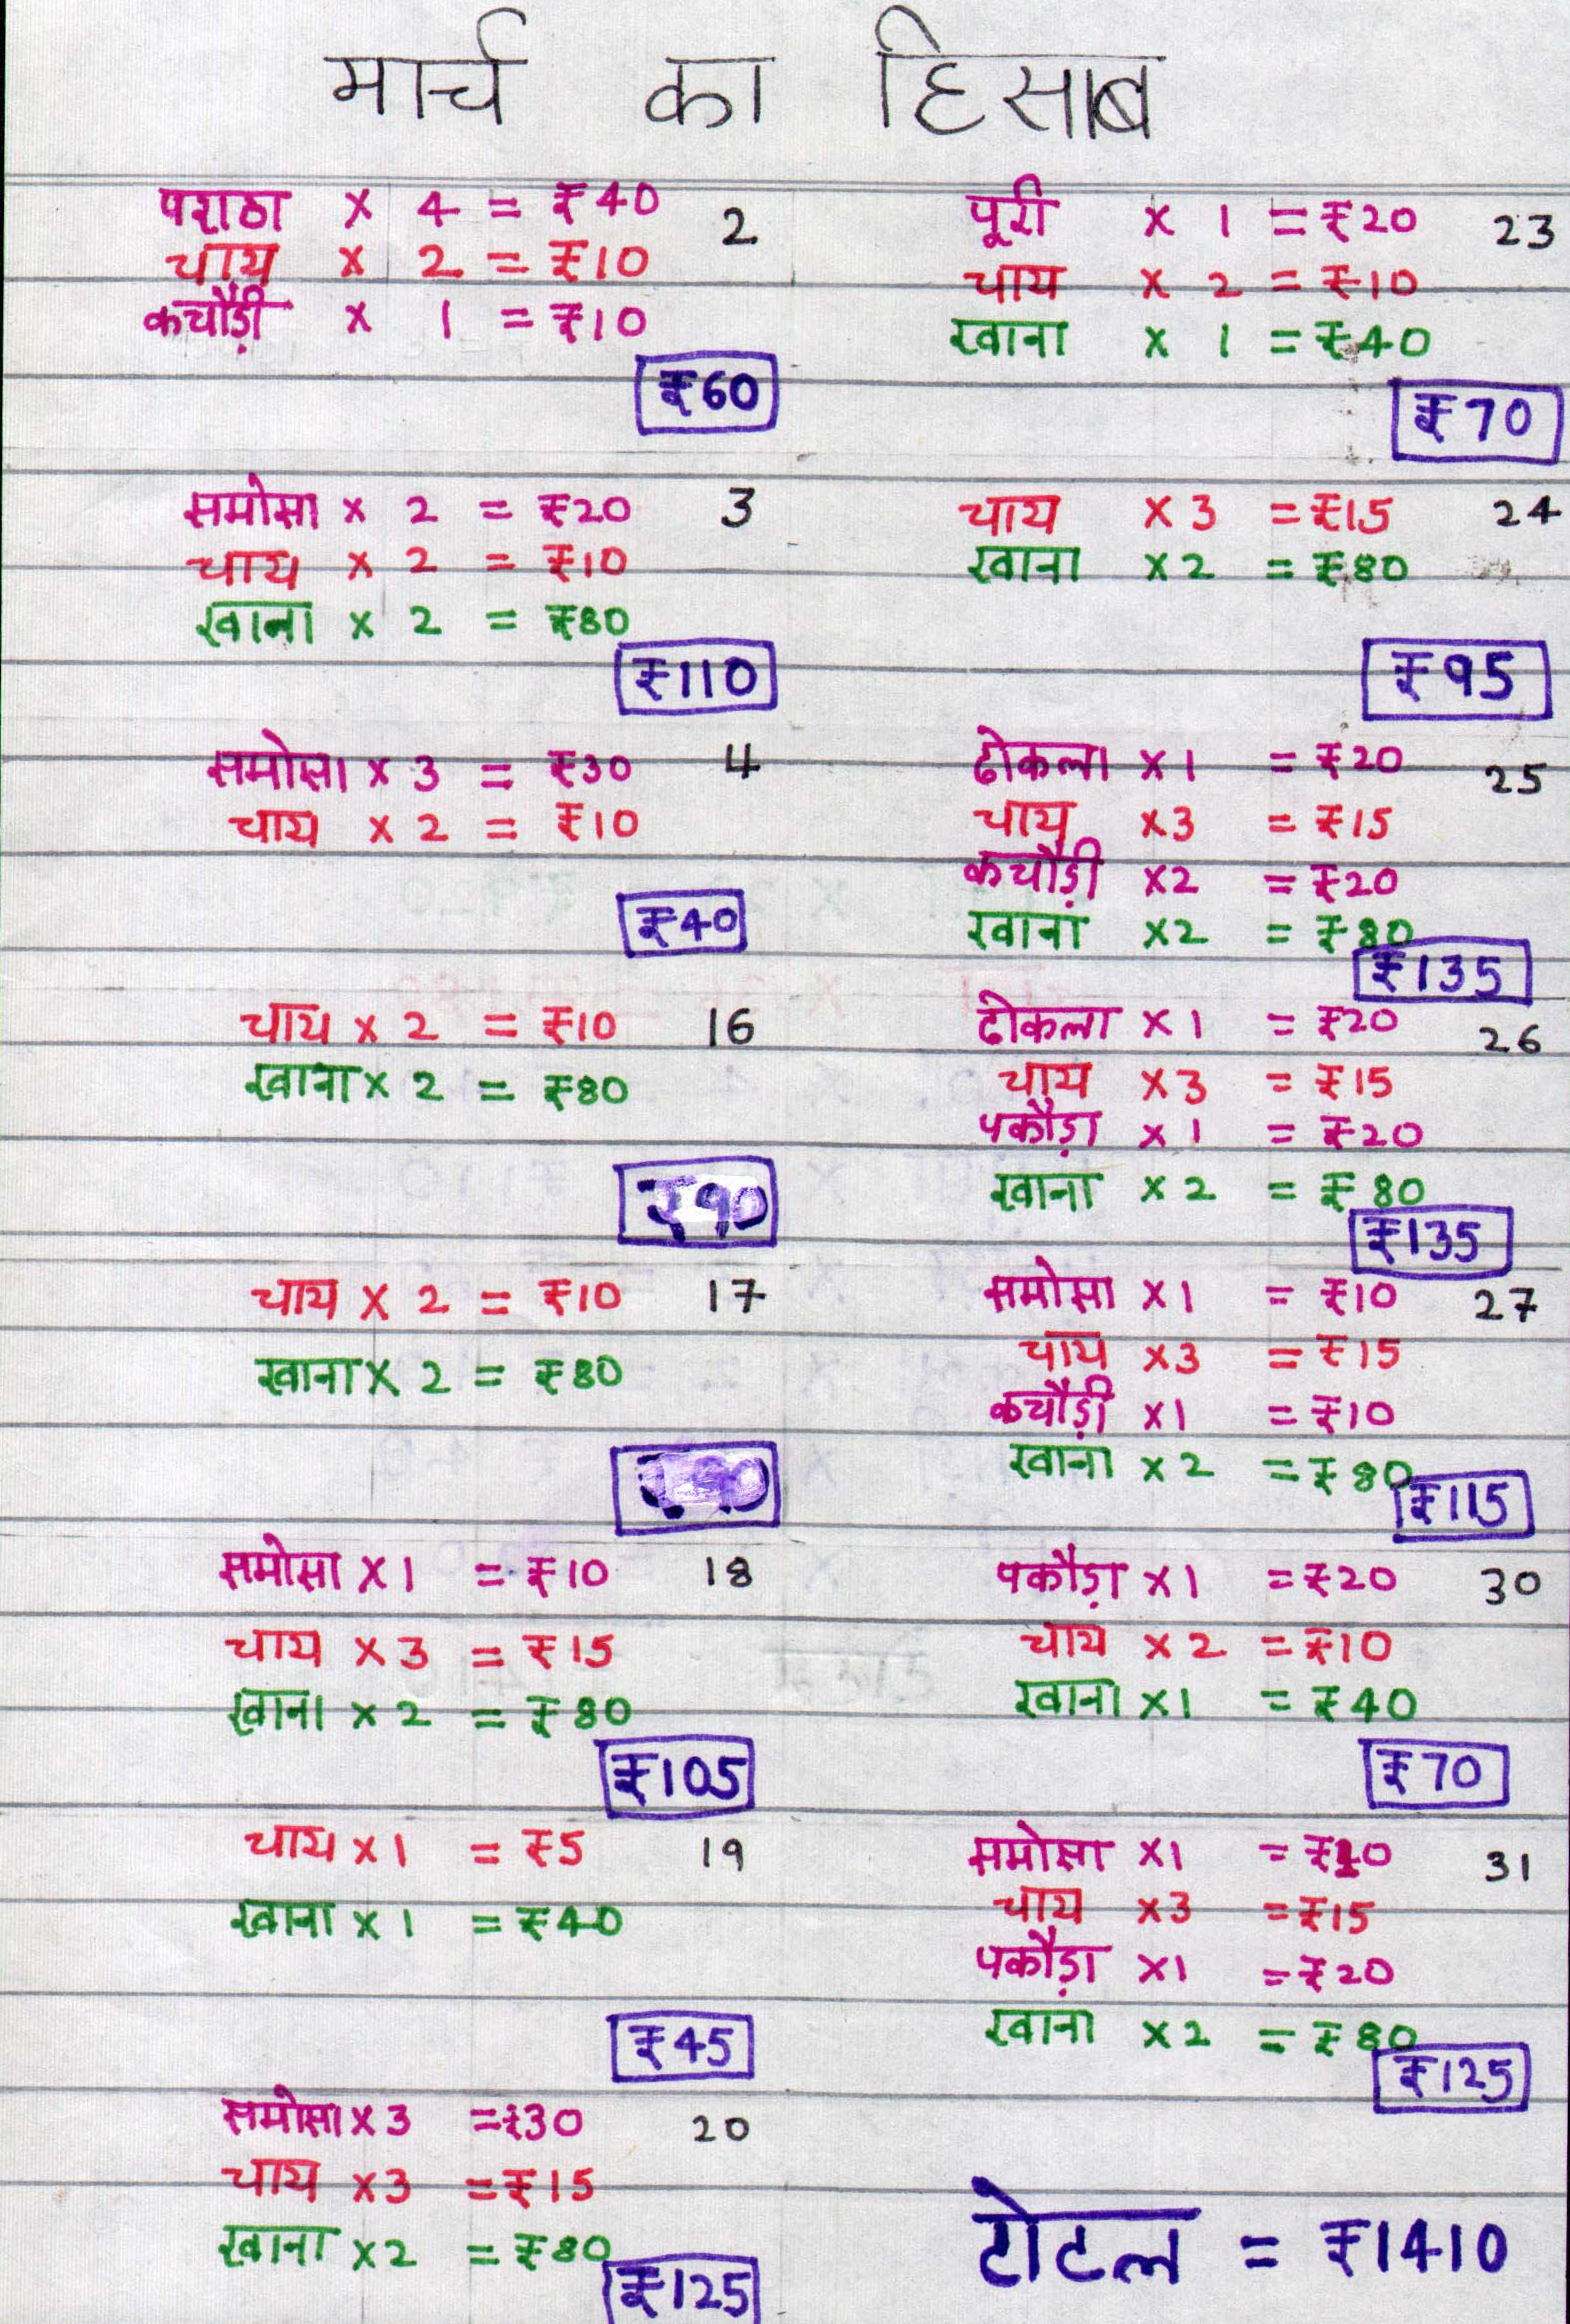 मार्च का हिसाब
पराठा × 4 = ₹40 2
चाय × 2 = ₹10
कचौड़ी × 1 = ₹10
₹60
समोसा × 2 = ₹20 3
चाय × 2 = ₹10
खाना × 2 = ₹80
₹110
समोसा × 3 = ₹30 4
चाय × 2 = ₹10
₹40
चाय × 2 = ₹10 16
खाना × 2 = ₹80
₹90
चाय × 2 = ₹10 17
खाना × 2 = ₹80
समोसा × 1 = ₹10 18
चाय × 3 = ₹15
खाना × 2 = ₹80
₹105
चाय × 1 = ₹5 19
खाना × 1 = ₹40
₹45
समोसा × 3 = ₹30 20
चाय × 3 = ₹15
खाना × 2 = ₹80
₹125
पूरी × 1 = ₹20 23
चाय × 2 = ₹10
खाना × 1 = ₹40
₹70
चाय × 3 = ₹15 24
खाना × 2 = ₹80
₹95
ढोकला × 1 = ₹20 25
चाय × 3 = ₹15
कचौड़ी × 2 = ₹20
खाना × 2 = ₹80
₹135
ढोकला × 1 = ₹20 26
चाय × 3 = ₹15
पकौड़ा × 1 = ₹20
खाना × 2 = ₹80
₹135
समोसा × 1 = ₹10 27
चाय × 3 = ₹15
कचौड़ी × 1 = ₹10
खाना × 2 = ₹80
₹115
पकौड़ा × 1 = ₹20 30
चाय × 2 = ₹10
खाना × 1 = ₹40
₹70
समोसा × 1 = ₹10 31
चाय × 3 = ₹15
पकौड़ा × 1 = ₹20
खाना × 2 = ₹80
₹125
टोटल = ₹1410